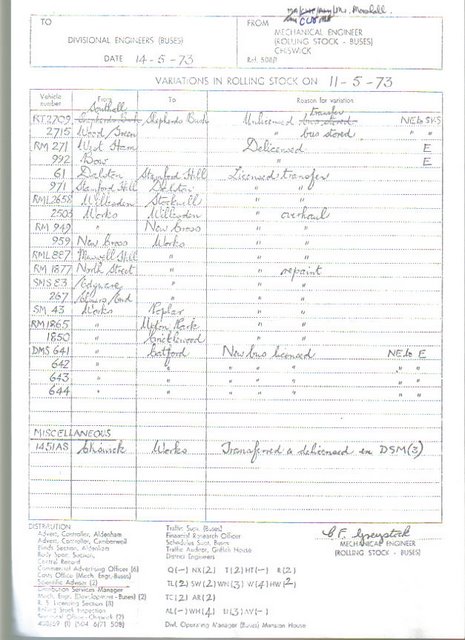 Mr. Marshall.
TO
FROM
DIVISIONAL ENGINEERS (BUSES)
MECHANICAL ENGINEER
(ROLLING STOCK - BUSES)
CHISWICK
DATE 14-5-73
Ref. 508D
VARIATIONS IN ROLLING STOCK ON 11-5-73
Vehicle number From To Reason for variation
Southall transfer
RT2709 Shepherds Bush Shepherds Bush Unlicensed bus stored NE to SKS
2715 Wood Green " bus stored "
RM 271 West Ham Delicensed E
992 Bow " E
61 Dalston Stamford Hill Licensed transfer
971 Stamford Hill Dalston " "
RML2658 Willesden Stockwell " "
2503 Works Willesden " overhaul
RM 949 " New Cross " "
959 New Cross Works " "
RML 887 Muswell Hill " " "
RM 1877 North Street " " repaint
SMS 83 Edgware " " "
267 " " "
SM 43 Works Poplar " "
RM1865 " Upton Park " "
1850 " Cricklewood " "
DMS 641 " Catford New bus licensed NE to E
642 " " " " " "
643 " " " " " "
644 " " " " " "
MISCELLANEOUS
1451AS Chiswick Works Transferred & delicensed ex DSM(3)
DISTRIBUTION
Advert. Controller, Aldenham
Advert. Controller, Camberwell
Blinds Section, Aldenham
Central Record
Commercial Advertising Officer (6)
Costs Office (Mech. Engr-Buses)
Scientific Adviser (2)
Distribution Services Manager
Mech. Engr. Development - Buses (2)
R. S. Licensing Section (3)
Rolling Stock Inspection
Traffic Supt. (Buses)
Financial Research Officer
Schedules Supt. Buses
Traffic Auditor, Griffith House
District Engineers
Q(-) NX(2) T(2) HT(-) R(2)
TL(2) SW(2) WN(3) W(4) HW(2)
TC(2) AR(2)
AL(-) WH(4) U(3) AV(-)
Divl. Operating Manager (Buses) Mansion House
C F. Greystock
MECHANICAL ENGINEER
(ROLLING STOCK - BUSES)